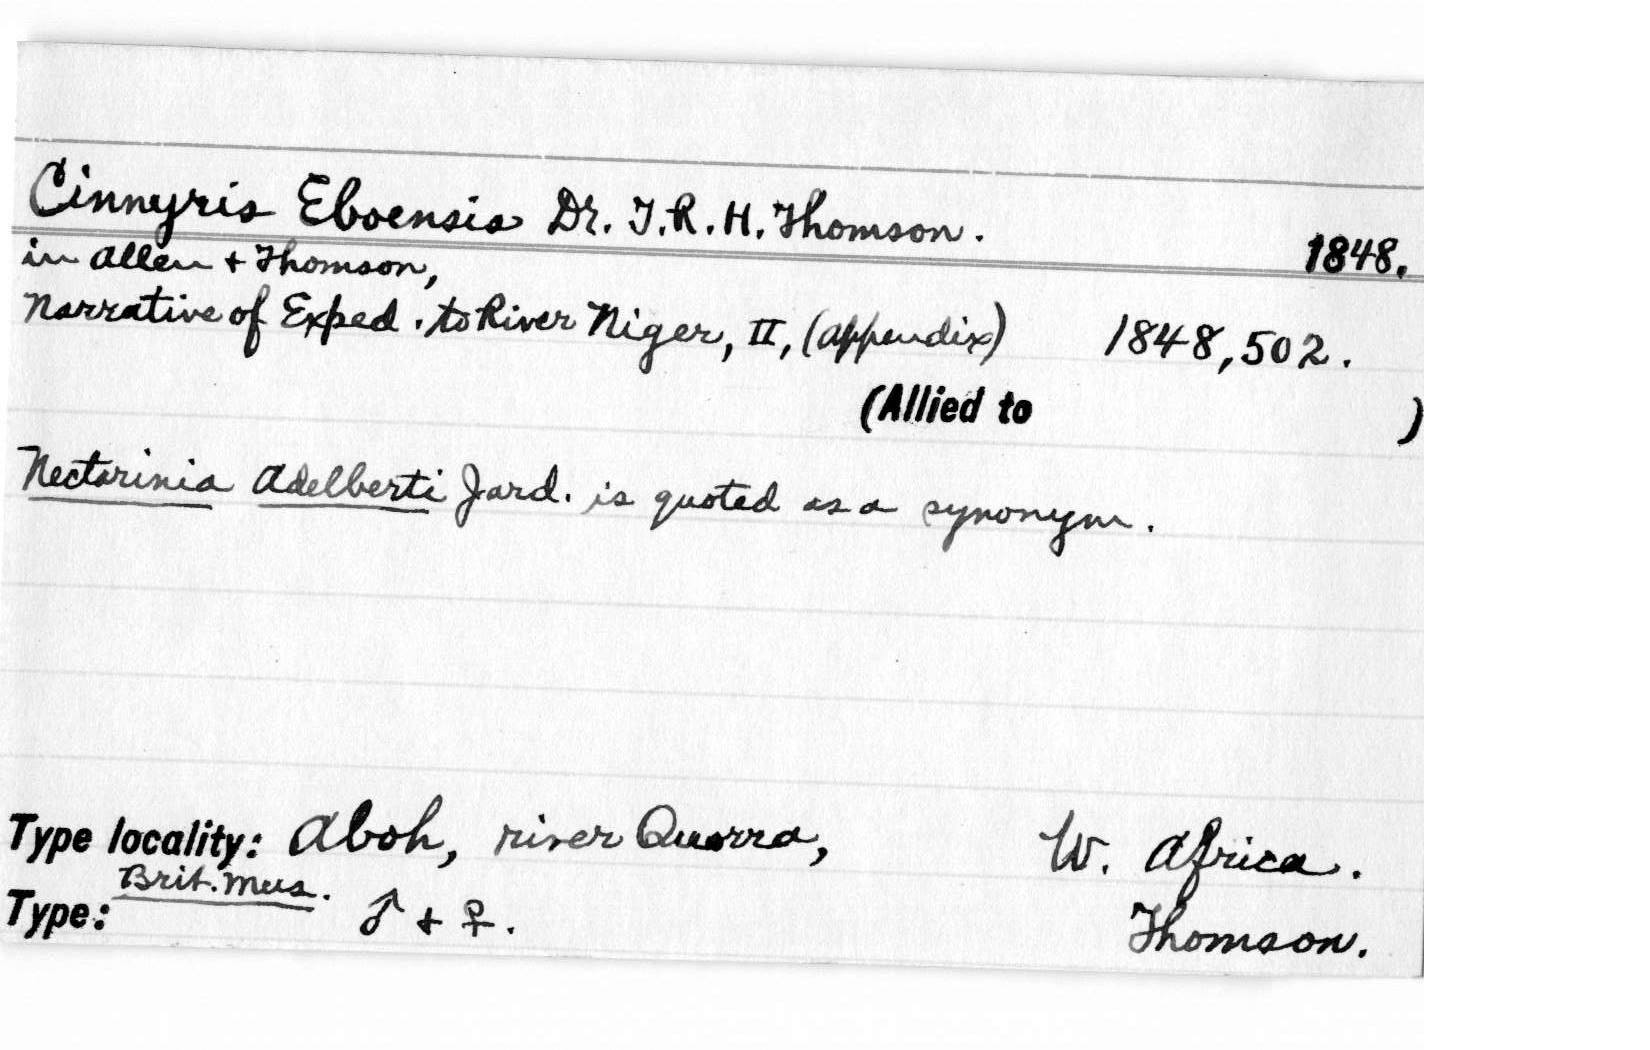 Cinnyris Eboensis Dr. T.R.H. Thomson. 1848.
in Allen + Thomson,
Narrative of Exped. to River Niger, II, (appendix) 1848, 502.
(Allied to )
Nectarinia Adelberti Jard. is quoted as a synonym.
Type locality: Aboh, river Quorra, W. Africa.
Brit. Mus.
Type: ♂ + ♀. Thomson.